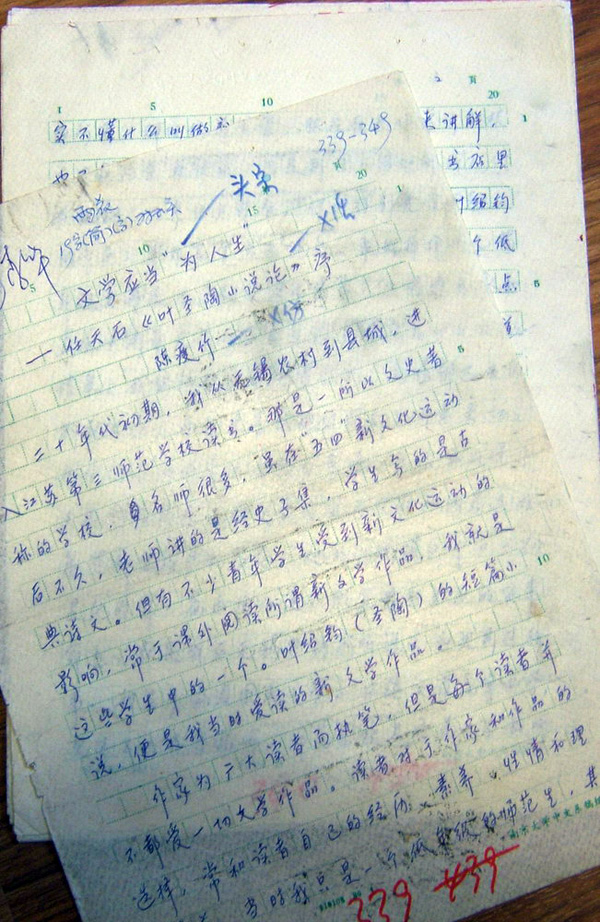 1 5 10 20
实不懂什么叫做
去讲解，
也
书店里
叶绍钧
个低
点
339-349
头宋
文学应当“为人生”
— 任天石《叶圣陶小说论》序
陈瘦竹
X仿
二十年代初期，我从无锡农村到县城，进
入江苏第三师范学校读书。那是一所以文史著
称的学校，名师很多，虽在“五四”新文化运动
后不久，老师讲的是经史子集，学生写的是古
典诗文。但有不少青年学生受到新文化运动的
影响，常于课外阅读所谓新文学作品，我就是
这些学生中的一个。叶绍钧（圣陶）的短篇小
说，便是我当时爱读的新文学作品。
作家为广大读者而执笔，但是每个读者并
不都爱一切文学作品。读者对于作家和作品的
选择，常和读者自己的经历、素养、性情和理
当时的我只是一个低年级的师范生，其
339 439